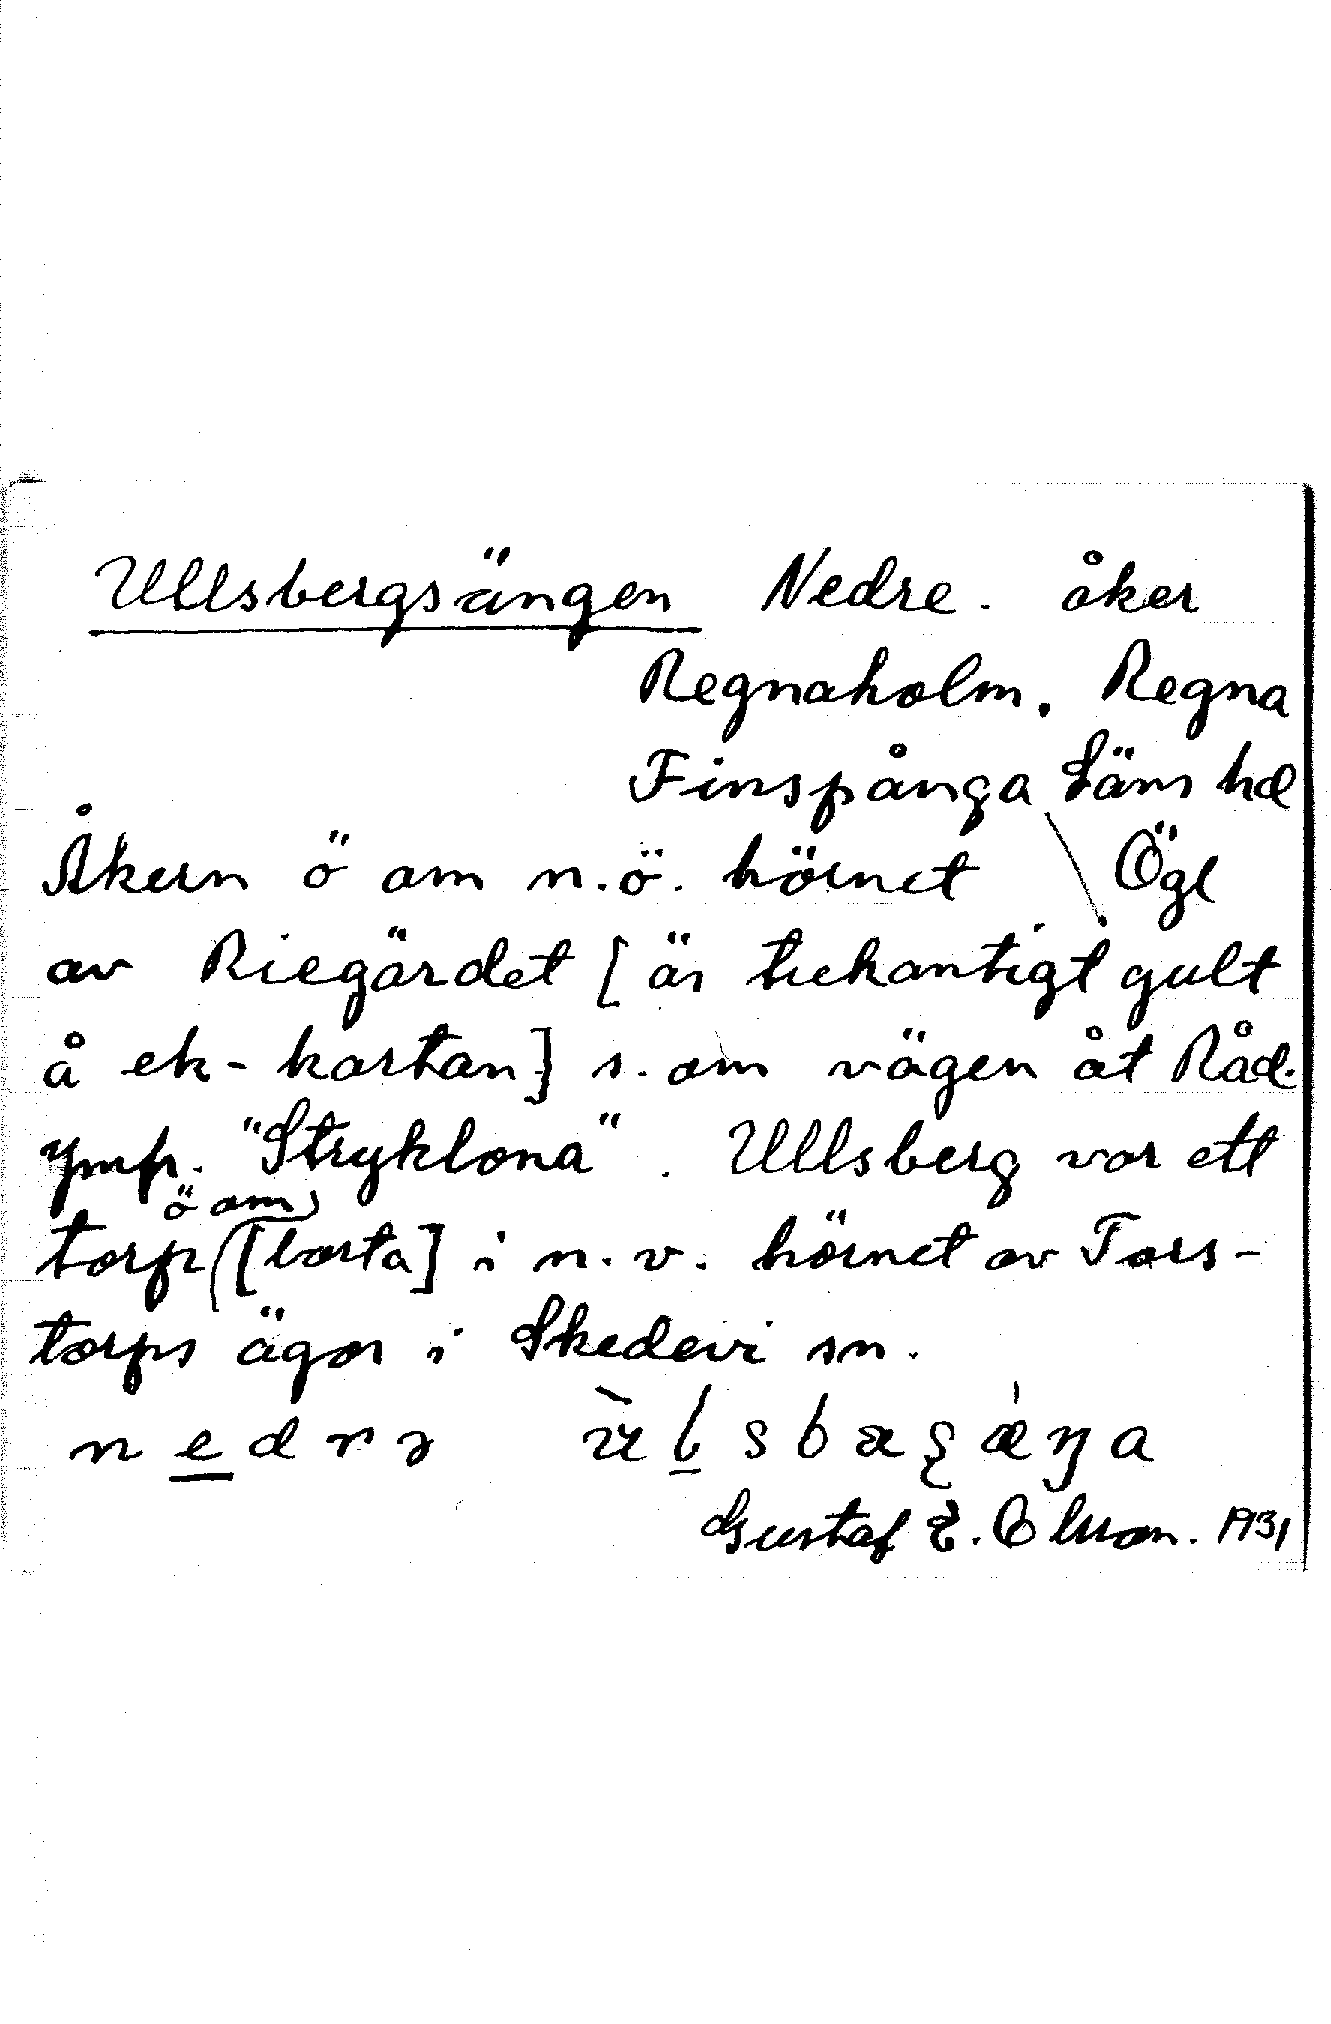 Ullsbergsängen Nedre. åker
Regnaholm. Regna
Finspånga läns hd
Ögl
Åkern ö om n.ö. hörnet
av Riegärdet [är trekantigt gult
å ek-kartan] s. om vägen åt Råd.
ymp. "Stryklona". Ullsberg var ett
ö om
torp [borta] i n.v. hörnet av Tors-
torps ägor i Skedevi sn.
Gustaf E. Olsson. 1931